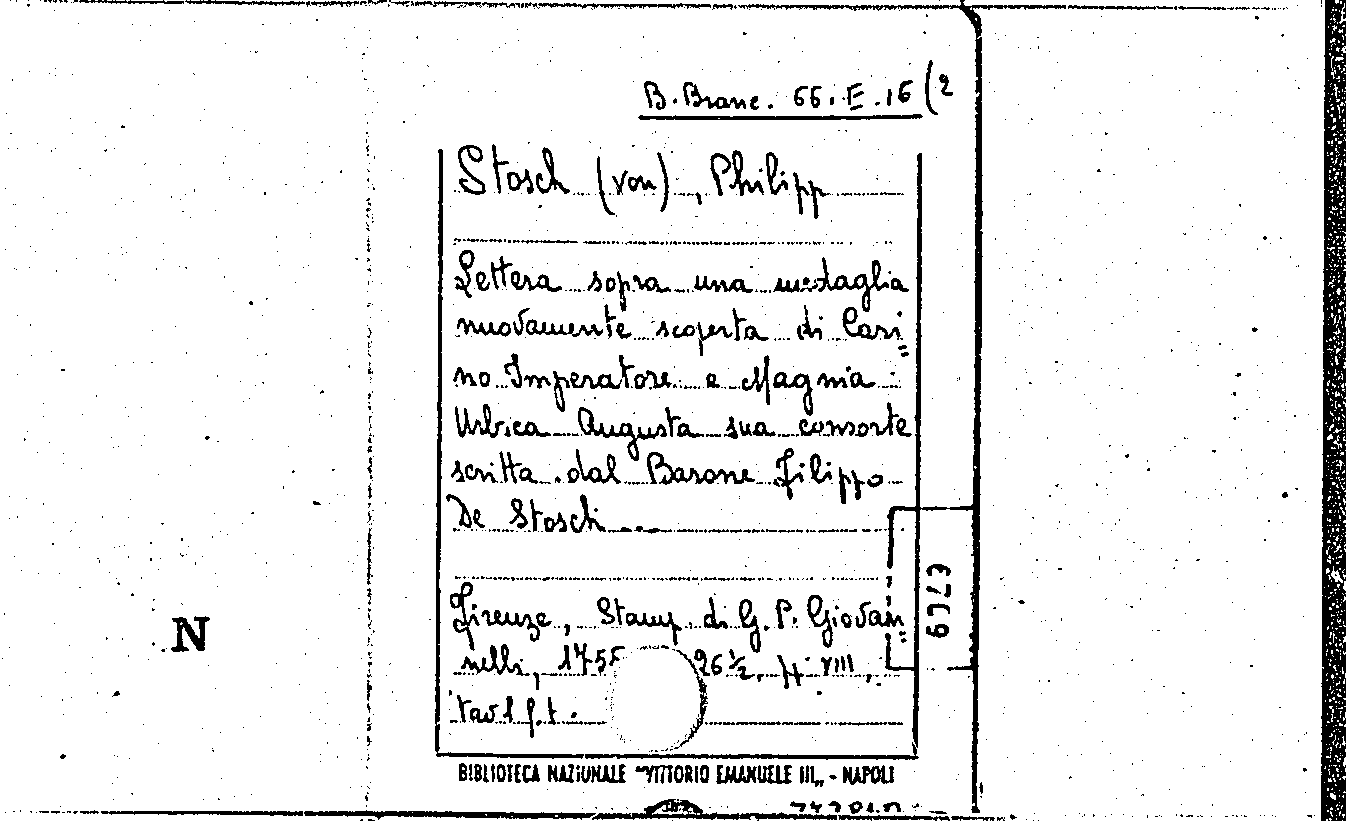 B. Branc. 66. E. 16 (2
Stosch (von), Philipp
Lettera sopra una medaglia
nuovamente scoperta di Cari=
no Imperatore e Magnia
Urbica Augusta sua consorte
scritta dal Barone Filippo
De Stosch ...
Firenze, Stamp. di G. P. Giovan=
nelli, 1755 26 ½, pp VIII,
tav 1 f.t.
N
BIBLIOTECA NAZIONALE "VITTORIO EMANUELE III„ - NAPOLI